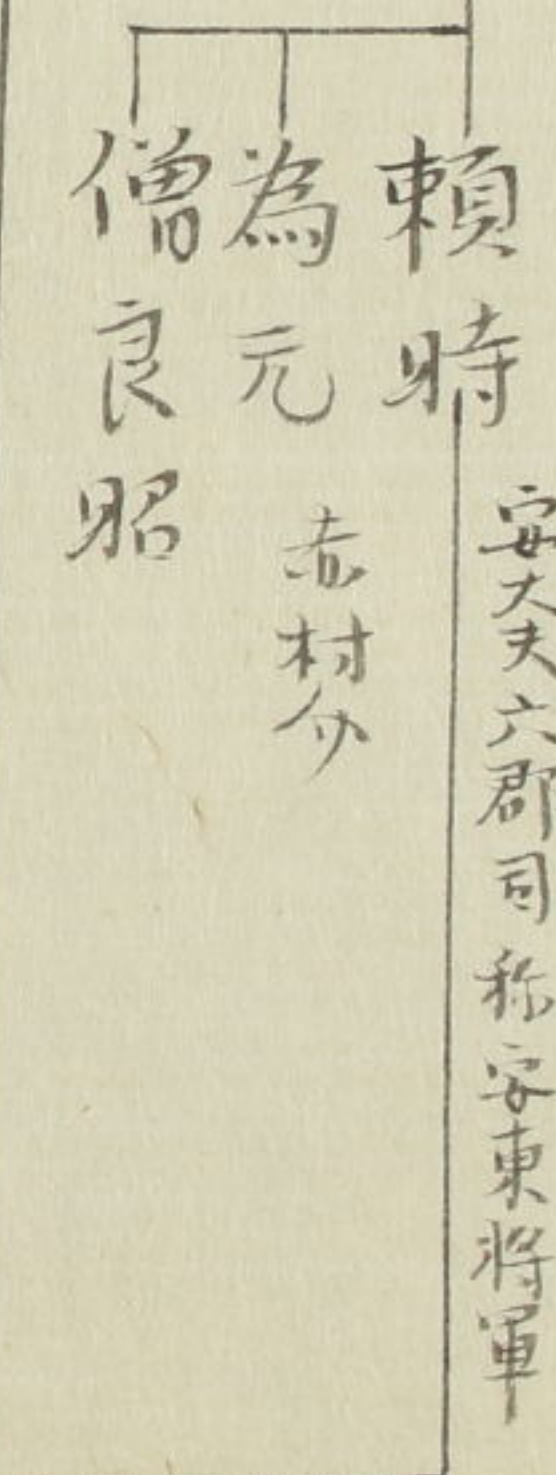 頼時
安大夫六郡司称安東将軍
為元
赤村介
僧良昭